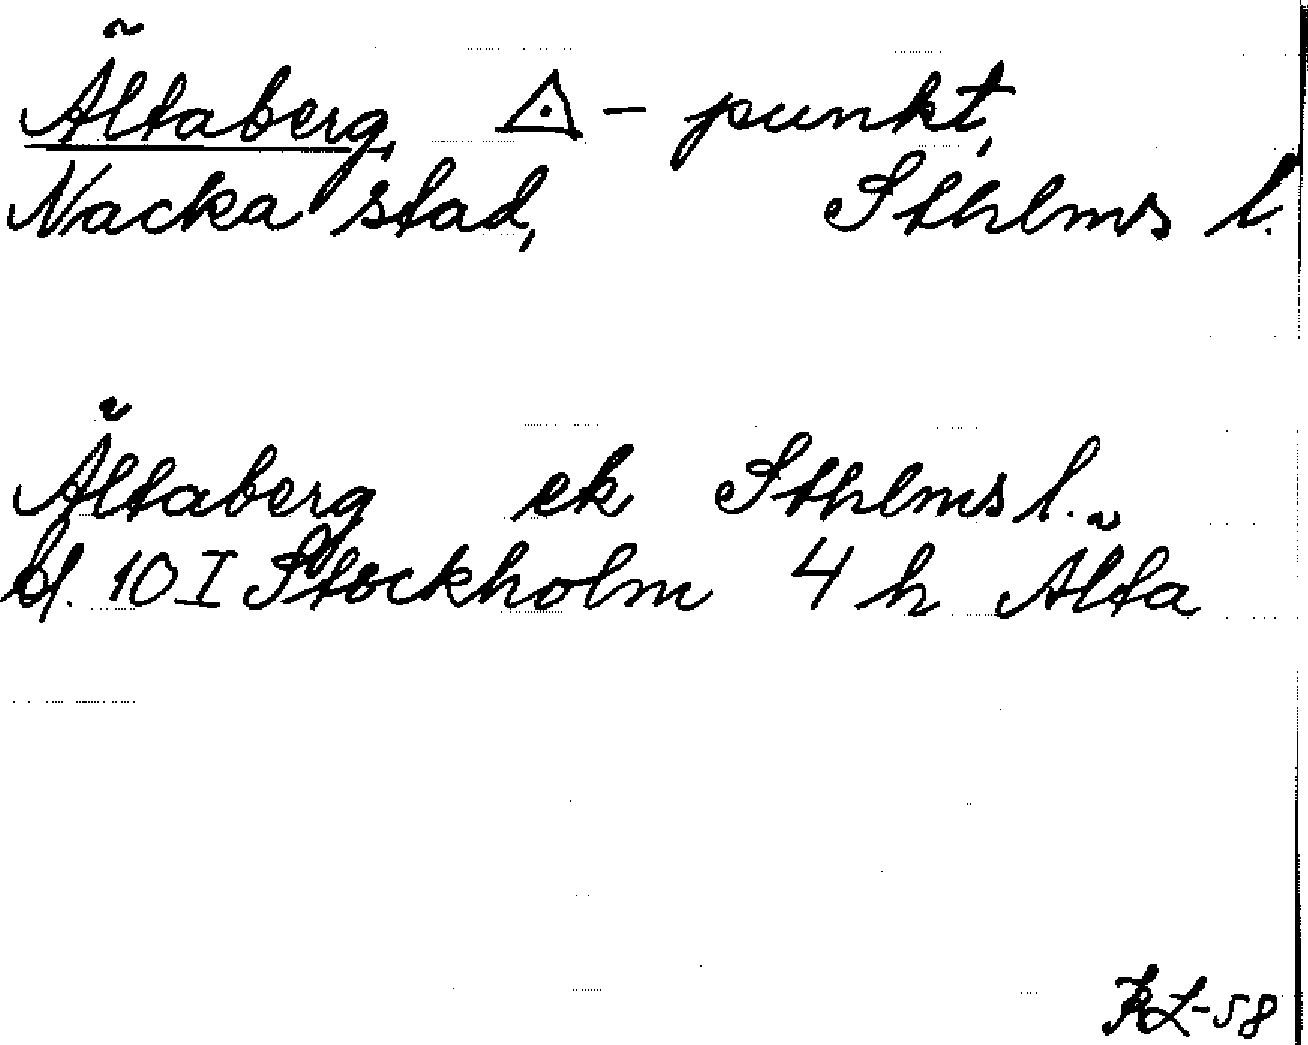 Ältaberg, △ - punkt,
Nacka stad, Sthlms l.
Ältaberg ek Sthlms l.
bl. 10 I Stockholm 4 h Älta
KL-58